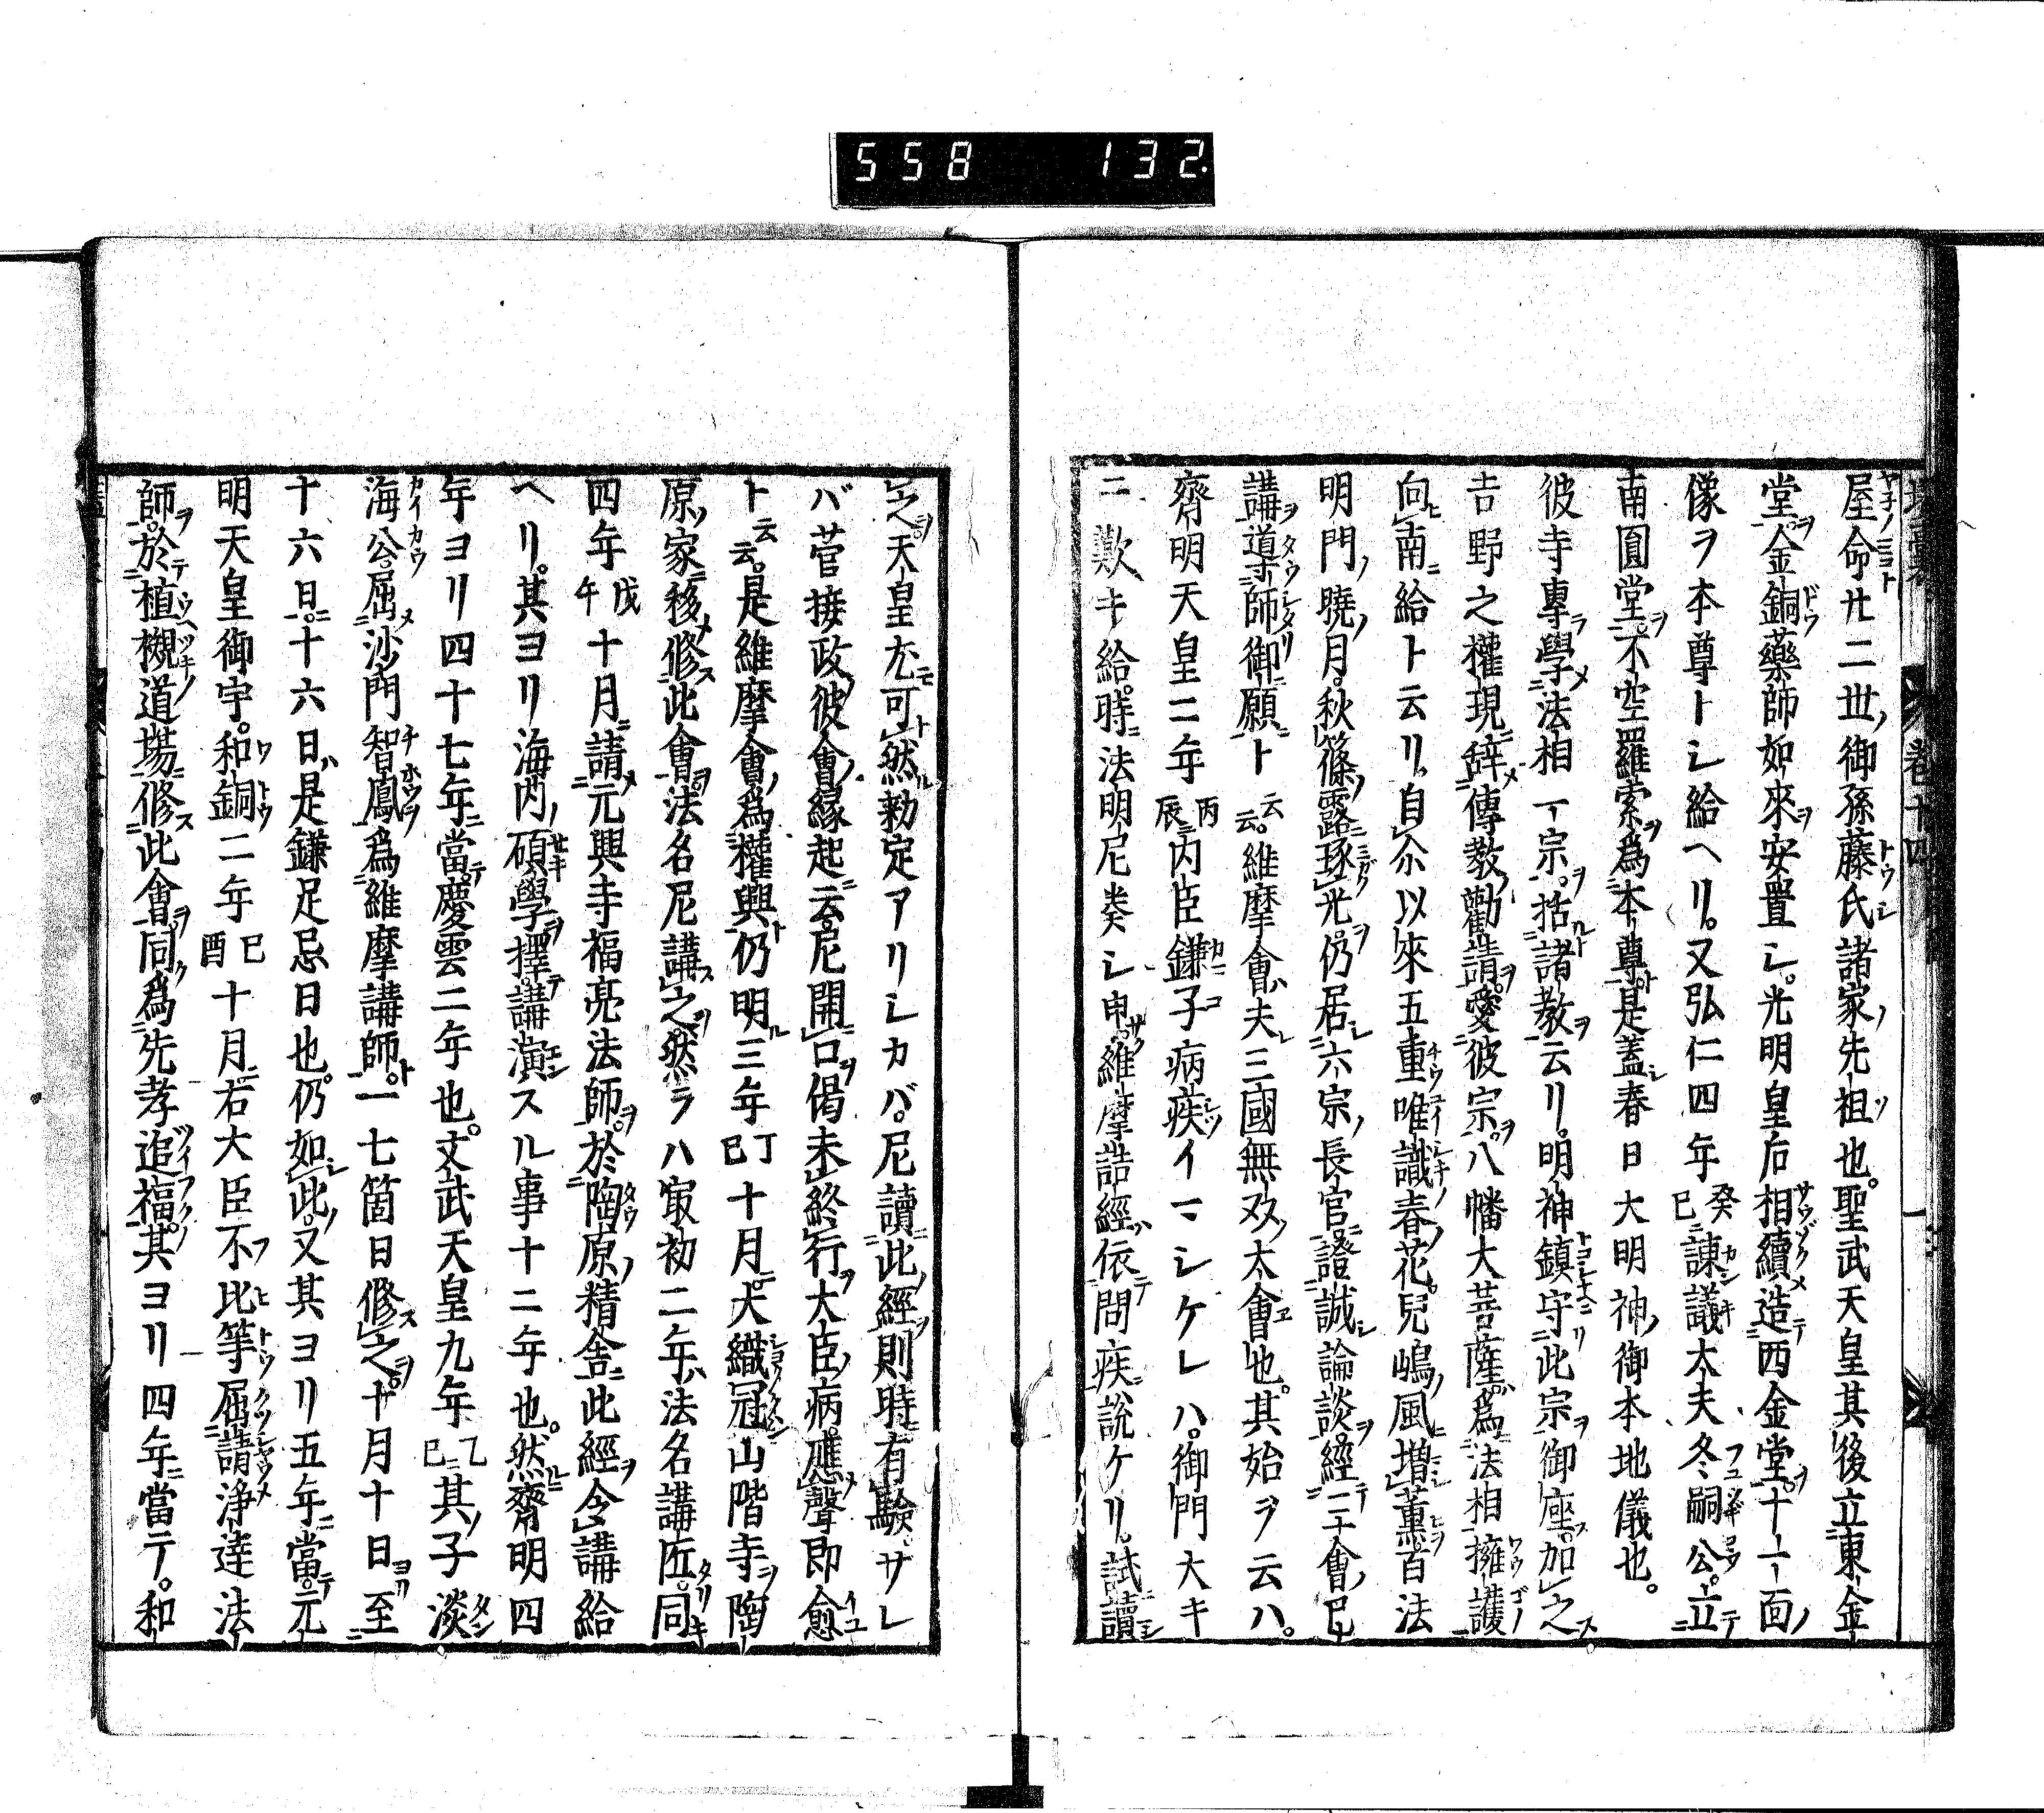 558 132
屋命廿二世御孫藤氏諸家先祖也。聖武天皇其後立東金
堂金銅藥師如來安置シ。光明皇后相續造西金堂十一面
像ヲ本尊トシ給ヘリ。又弘仁四年癸巳諫議太夫冬嗣公立
南圓堂不空羅索為本尊是蓋春日大明神御本地儀也。
彼寺專學法相一宗。括諸教云リ。明神鎮守此宗御座加之
吉野之權現辞傳教勸請愛彼宗。八幡大菩薩為法相擁護
向南給ト云リ。自尓以來五重唯識春花。兒嶋風増薫百法
明門曉月。秋篠露琢光仍居六宗長官證誠論談經二會已
講道師御願ト云云。維摩會夫三國無双太會也。其始ヲ云ハ。
齊明天皇二年丙辰内臣鎌子病疾イマシケレハ。御門大キ
ニ歎キ給。時法明尼奏シ申維摩詰經依問疾説ケリ。試讀
之天皇尤可然勅定アリシカバ。尼讀此經則時有驗サレ
バ菅接政彼會縁起云尼開口偈未終行大臣病應聲即愈
ト云云。是維摩會為權輿仍明三年丁巳十月大織冠山階寺陶
原家移修此會法名尼講之然ラハ冣初二年法名講匠。同
四年戊午十月請元興寺福亮法師。於陶原精舎此經令講給
ヘリ。其ヨリ海内碩學擇講演スル事十二年也。然齊明四
年ヨリ四十七年當慶雲二年也。文武天皇九年乙巳其子淡
海公屈沙門智鳳為維摩講師。一七箇日修之。十月十日至
十六日。十六日是鎌足忌日也。仍如此。又其ヨリ五年當元
明天皇御宇。和銅二年己酉十月右大臣不比等屈請浄達法
師。於植槻道場修此會同為先孝追福。其ヨリ四年當テ。和